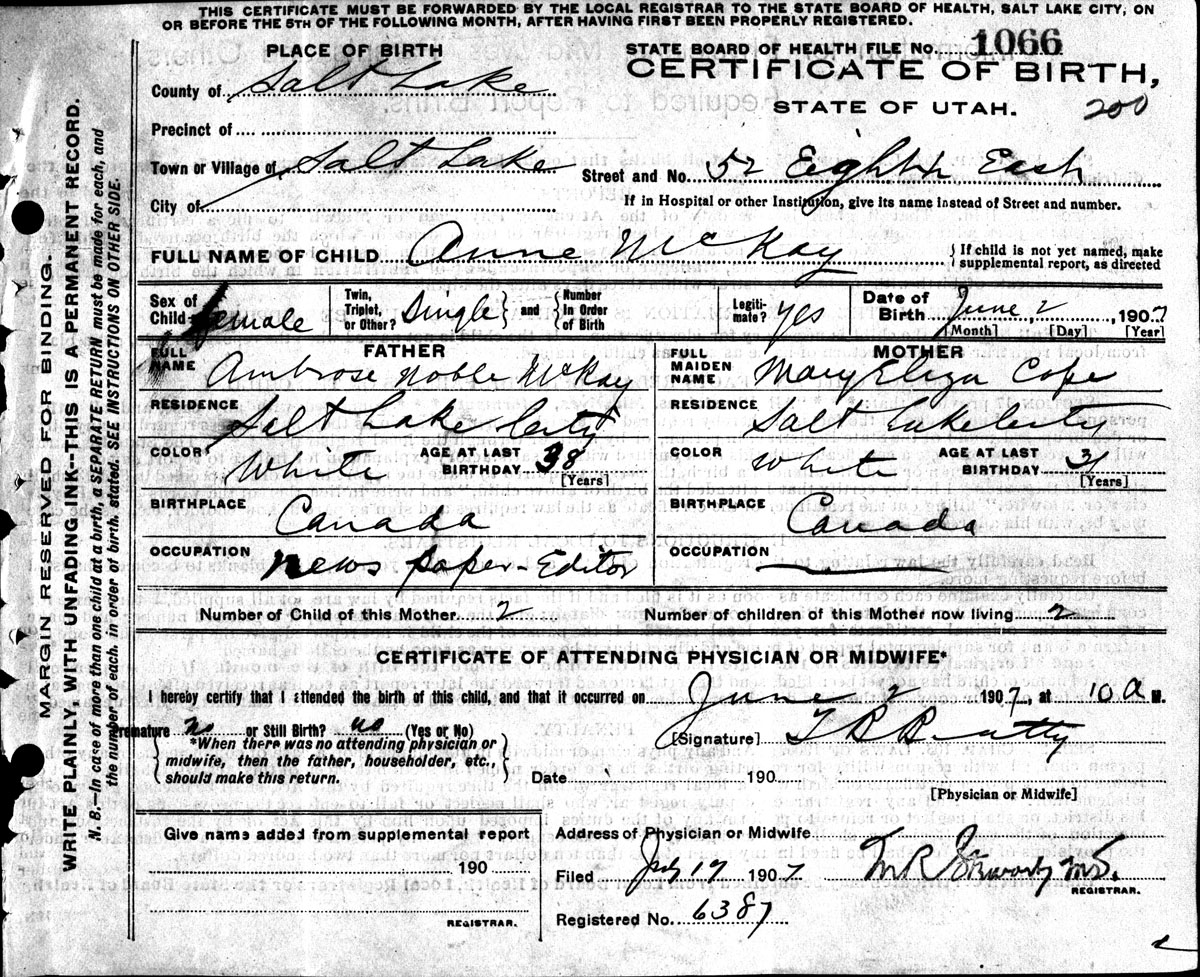 THIS CERTIFICATE MUST BE FORWARDED BY THE LOCAL REGISTRAR TO THE STATE BOARD OF HEALTH, SALT LAKE CITY, ON
OR BEFORE THE 5TH OF THE FOLLOWING MONTH, AFTER HAVING FIRST BEEN PROPERLY REGISTERED.
MARGIN RESERVED FOR BINDING.
WRITE PLAINLY, WITH UNFADING INK--THIS IS A PERMANENT RECORD.
N. B.—In case of more than one child at a birth, a SEPARATE RETURN must be made for each, and
the number of each, in order of birth, stated. SEE INSTRUCTIONS ON OTHER SIDE.
PLACE OF BIRTH
STATE BOARD OF HEALTH FILE No. 1066
CERTIFICATE OF BIRTH,
STATE OF UTAH.
200
County of Salt Lake
Precinct of
Town or Village of Salt Lake
Street and No. 52 Eighth East
City of
If in Hospital or other Institution, give its name instead of Street and number.
FULL NAME OF CHILD Anne McKay
If child is not yet named, make
supplemental report, as directed
Sex of Child female
Twin, Triplet, or Other? Single and Number In Order of Birth
Legitimate? yes
Date of Birth June 2, 1907
[Month] [Day] [Year]
FATHER
FULL NAME Ambrose Noble McKay
RESIDENCE Salt Lake City
COLOR White AGE AT LAST BIRTHDAY 38 [Years]
BIRTHPLACE Canada
OCCUPATION News paper-Editor
MOTHER
FULL MAIDEN NAME Mary Eliza Cope
RESIDENCE Salt Lake City
COLOR White AGE AT LAST BIRTHDAY 31 [Years]
BIRTHPLACE Canada
OCCUPATION
Number of Child of this Mother 2
Number of children of this Mother now living 2
CERTIFICATE OF ATTENDING PHYSICIAN OR MIDWIFE*
I hereby certify that I attended the birth of this child, and that it occurred on June 2 1907, at 10 a M.
Premature no or Still Birth? no (Yes or No)
*When there was no attending physician or
midwife, then the father, householder, etc.,
should make this return.
[Signature] T B Beatty
Date 190
[Physician or Midwife]
Give name added from supplemental report
190
REGISTRAR.
Address of Physician or Midwife
Filed July 17 1907
REGISTRAR.
Registered No. 6387